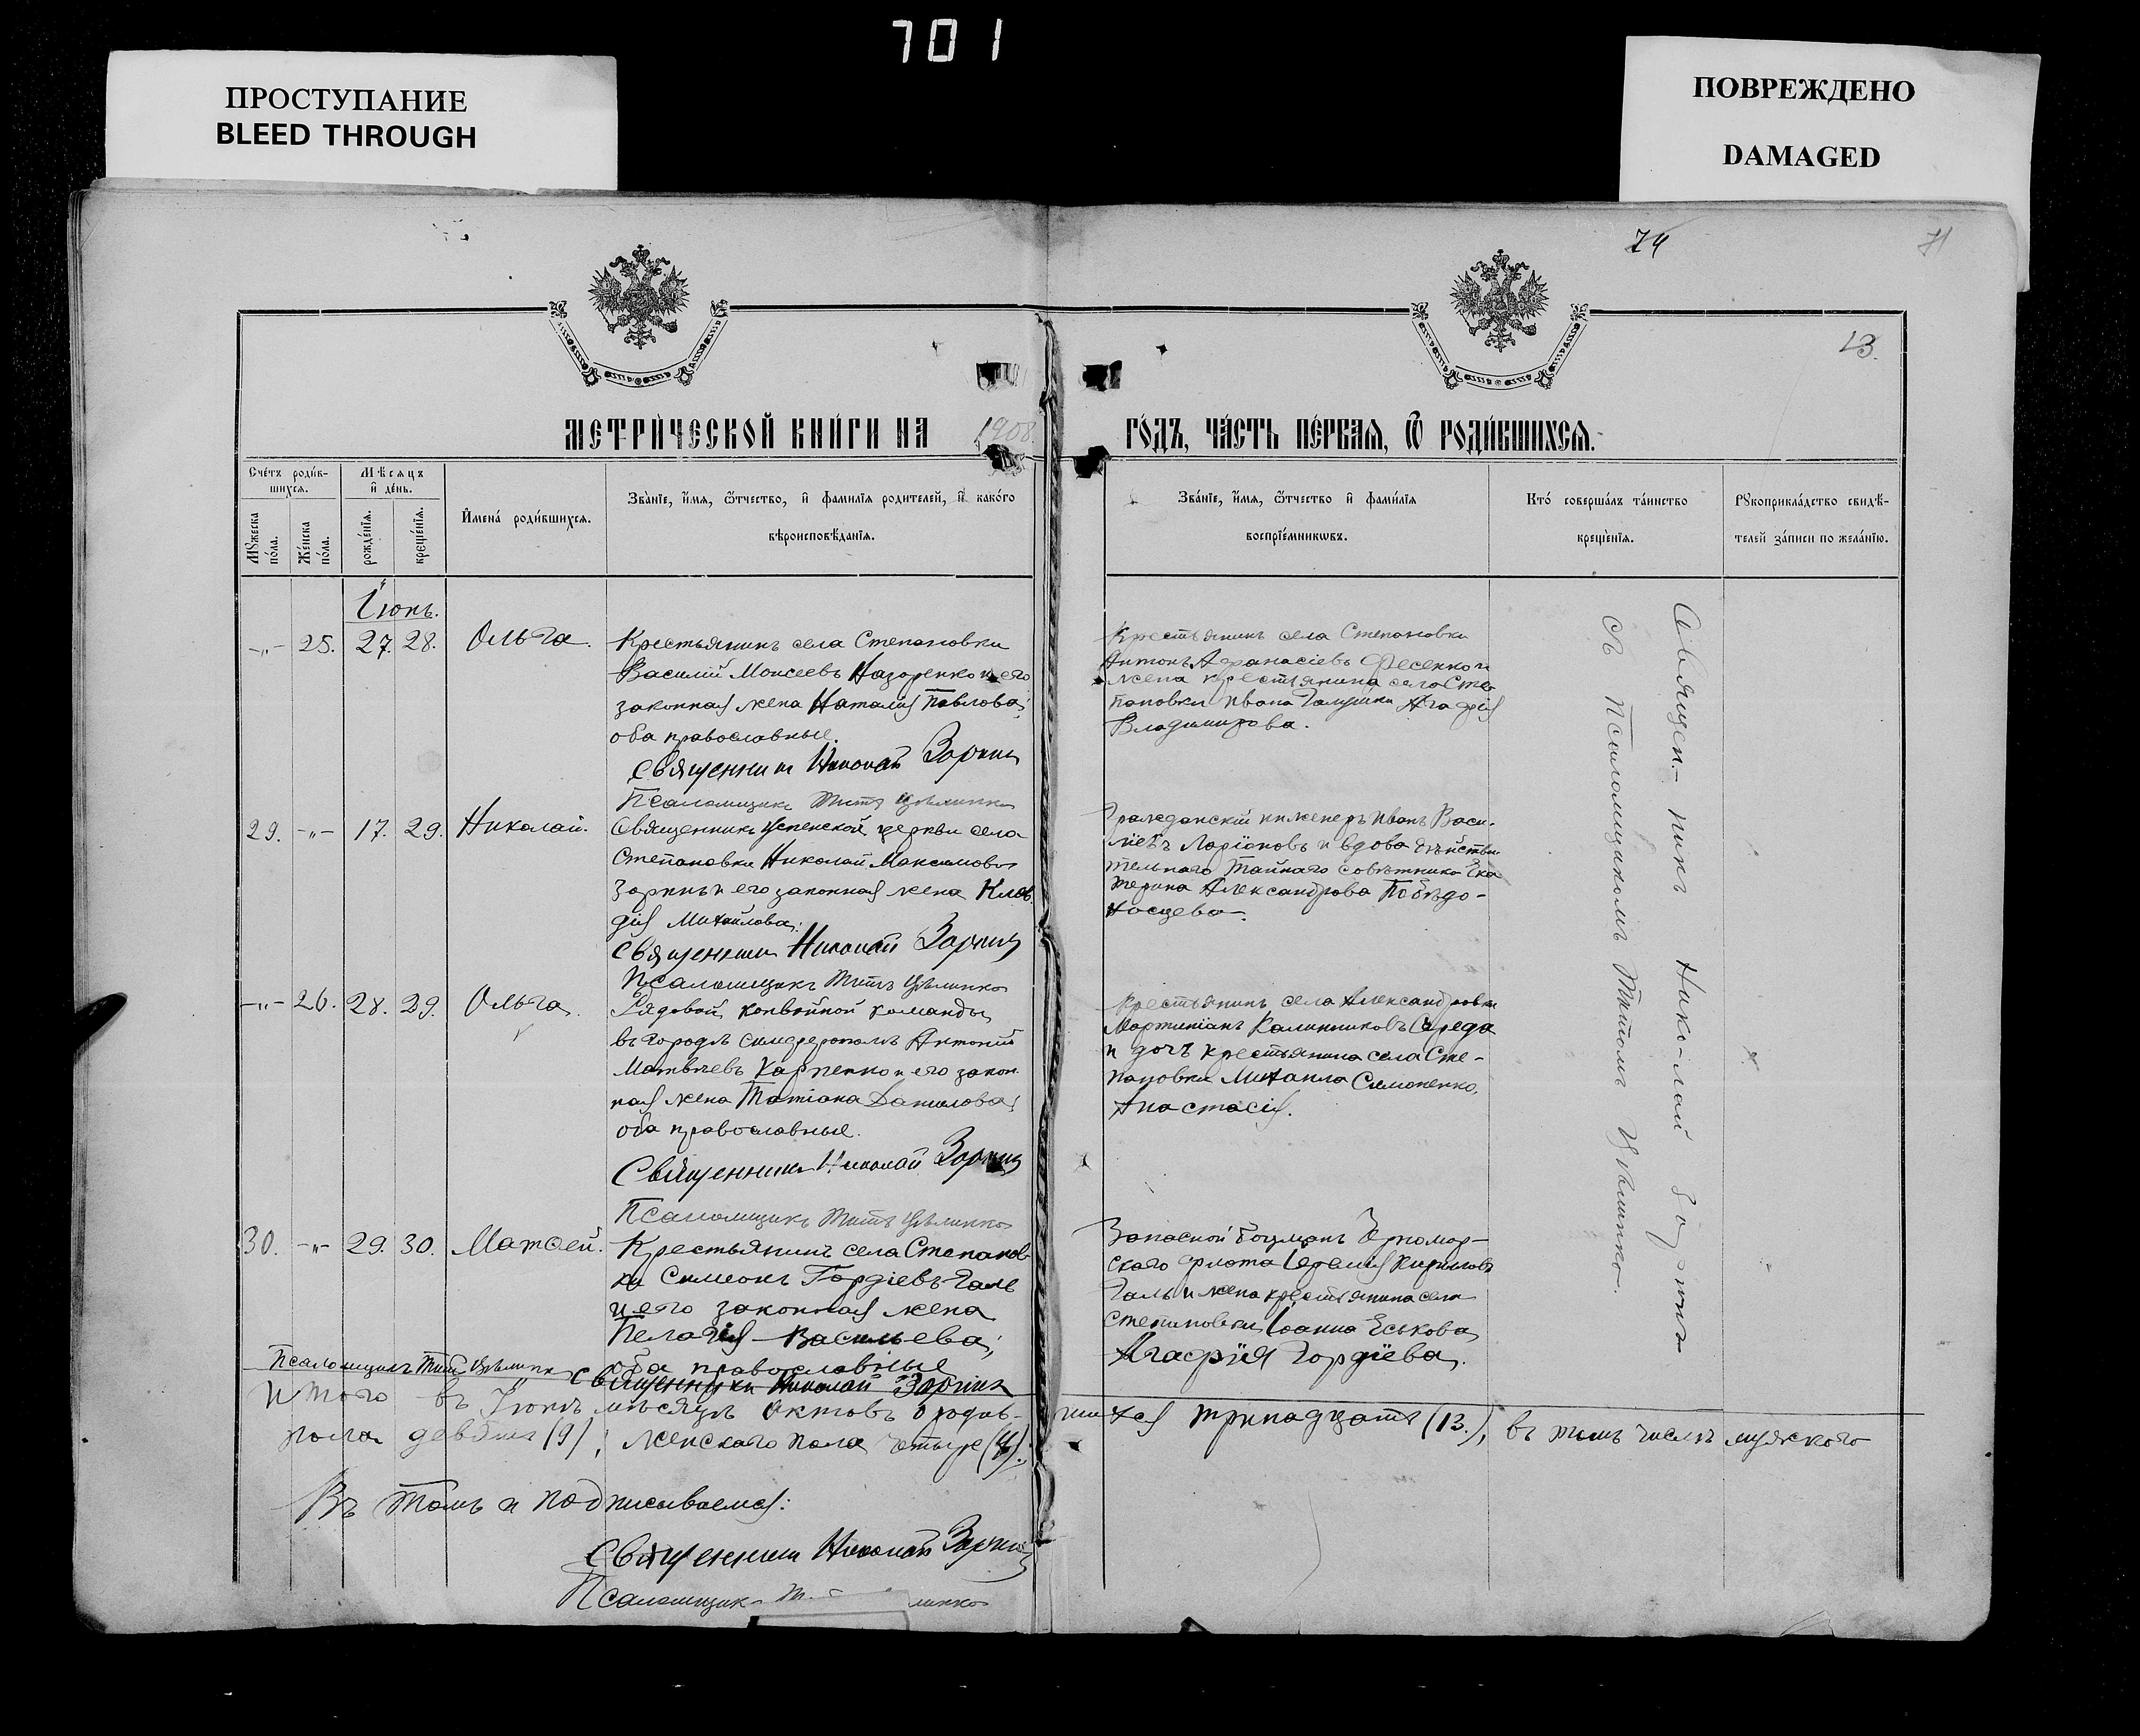 701
ПРОСТУПАНИЕ
BLEED THROUGH
ПОВРЕЖДЕНО
DAMAGED
74
71
13.
МЕТРИ́ЧЕСКОЙ КНИ́ГИ НА 1908
ГО́ДЪ, ЧА́СТЬ ПЕ́РВАѦ, Ѽ РОДИ́ВШИХСѦ.
Сче́тъ роди́в-
шихсѧ.
Мѣсѧцъ
и҆ де́нь.
Мꙋжеска
по́ла.
Же́нска
по́ла.
рожде́нїѧ.
креще́нїѧ.
И҆мена́ роди́вшихсѧ.
Зва́нїе, и҆́мѧ, ѻ҆́тчество, и҆ фами́лїѧ роди́телей, и҆ како́го
вѣроисповѣ́данїѧ.
Зва́нїе, и҆́мѧ, ѻ҆́тчество и҆ фами́лїѧ
воспрїе́мникѡвъ.
Кто̀ соверша́лъ та́инство
креще́нїѧ.
Рꙋкоприкла́дство свидѣ́-
телей за́писи по жела́нїю.
Іюнь.
-„- 25. 27. 28. Ольга.
Крестьянинъ села Степановки
Василій Моисеевъ Назоренко и его
законная жена Наталія Павлова;
оба православные.
Священникъ Николай Зоркинъ
Псаломщикъ Титъ Цѣлинко
Крестьянинъ села Степановки
Антонъ Аѳанасіевъ Фесенко и
жена крестьянина села Сте-
пановки Ивана Галушки Агафія
Владимирова.
29. -„- 17. 29. Николай.
Священникъ Успенской церкви села
Степановки Николай Максимовъ
Зоркинъ и его законная жена Клав-
дія Михайлова;
Священникъ Николай Зоркинъ
Псаломщикъ Титъ Цѣлинко
Гражданскій инженеръ Иванъ Васи-
ліевъ Ларіоновъ и вдова дѣйстви-
тельнаго Тайнаго совѣтника Ека-
терина Александрова Побѣдо-
носцева.
-„- 26. 28. 29. Ольга.
Рядовой конвойной команды
въ городѣ Симферополѣ Антоній
Матвѣевъ Карпенко и его закон-
ная жена Татіана Данилова;
оба православные.
Священникъ Николай Зоркинъ
Псаломщикъ Титъ Цѣлинко
Крестьянинъ села Александровки
Мартиніанъ Калинниковъ Середа
и дочь крестьянина села Сте-
пановки Михаила Симоненко,
Анастасія.
30. -„- 29. 30. Матѳей.
Крестьянинъ села Степанов-
ки Симеонъ Гордіевъ Галь
и его законная жена
Пелагія Васильева;
оба православные
Псаломщикъ Титъ Цѣлинко Священникъ Николай Зоркинъ
Запасной боцманъ Черномор-
скаго флота Іеремія Кирилловъ
Галь и жена крестьянина села
Степановки Іоанна Еськова
Агафія Гордіева.
Священ-никъ Нико-лай Зоркинъ
съ Псаломщикомъ Титомъ Цѣлинко.
Итого въ Іюнѣ мѣсяцѣ актовъ о родив-шихся тринадцать (13.), въ томъ числѣ мужского
пола девять (9); женскаго пола четыре (4).
Въ томъ и подписываемся:
Священникъ Николай Зоркинъ
Псаломщикъ